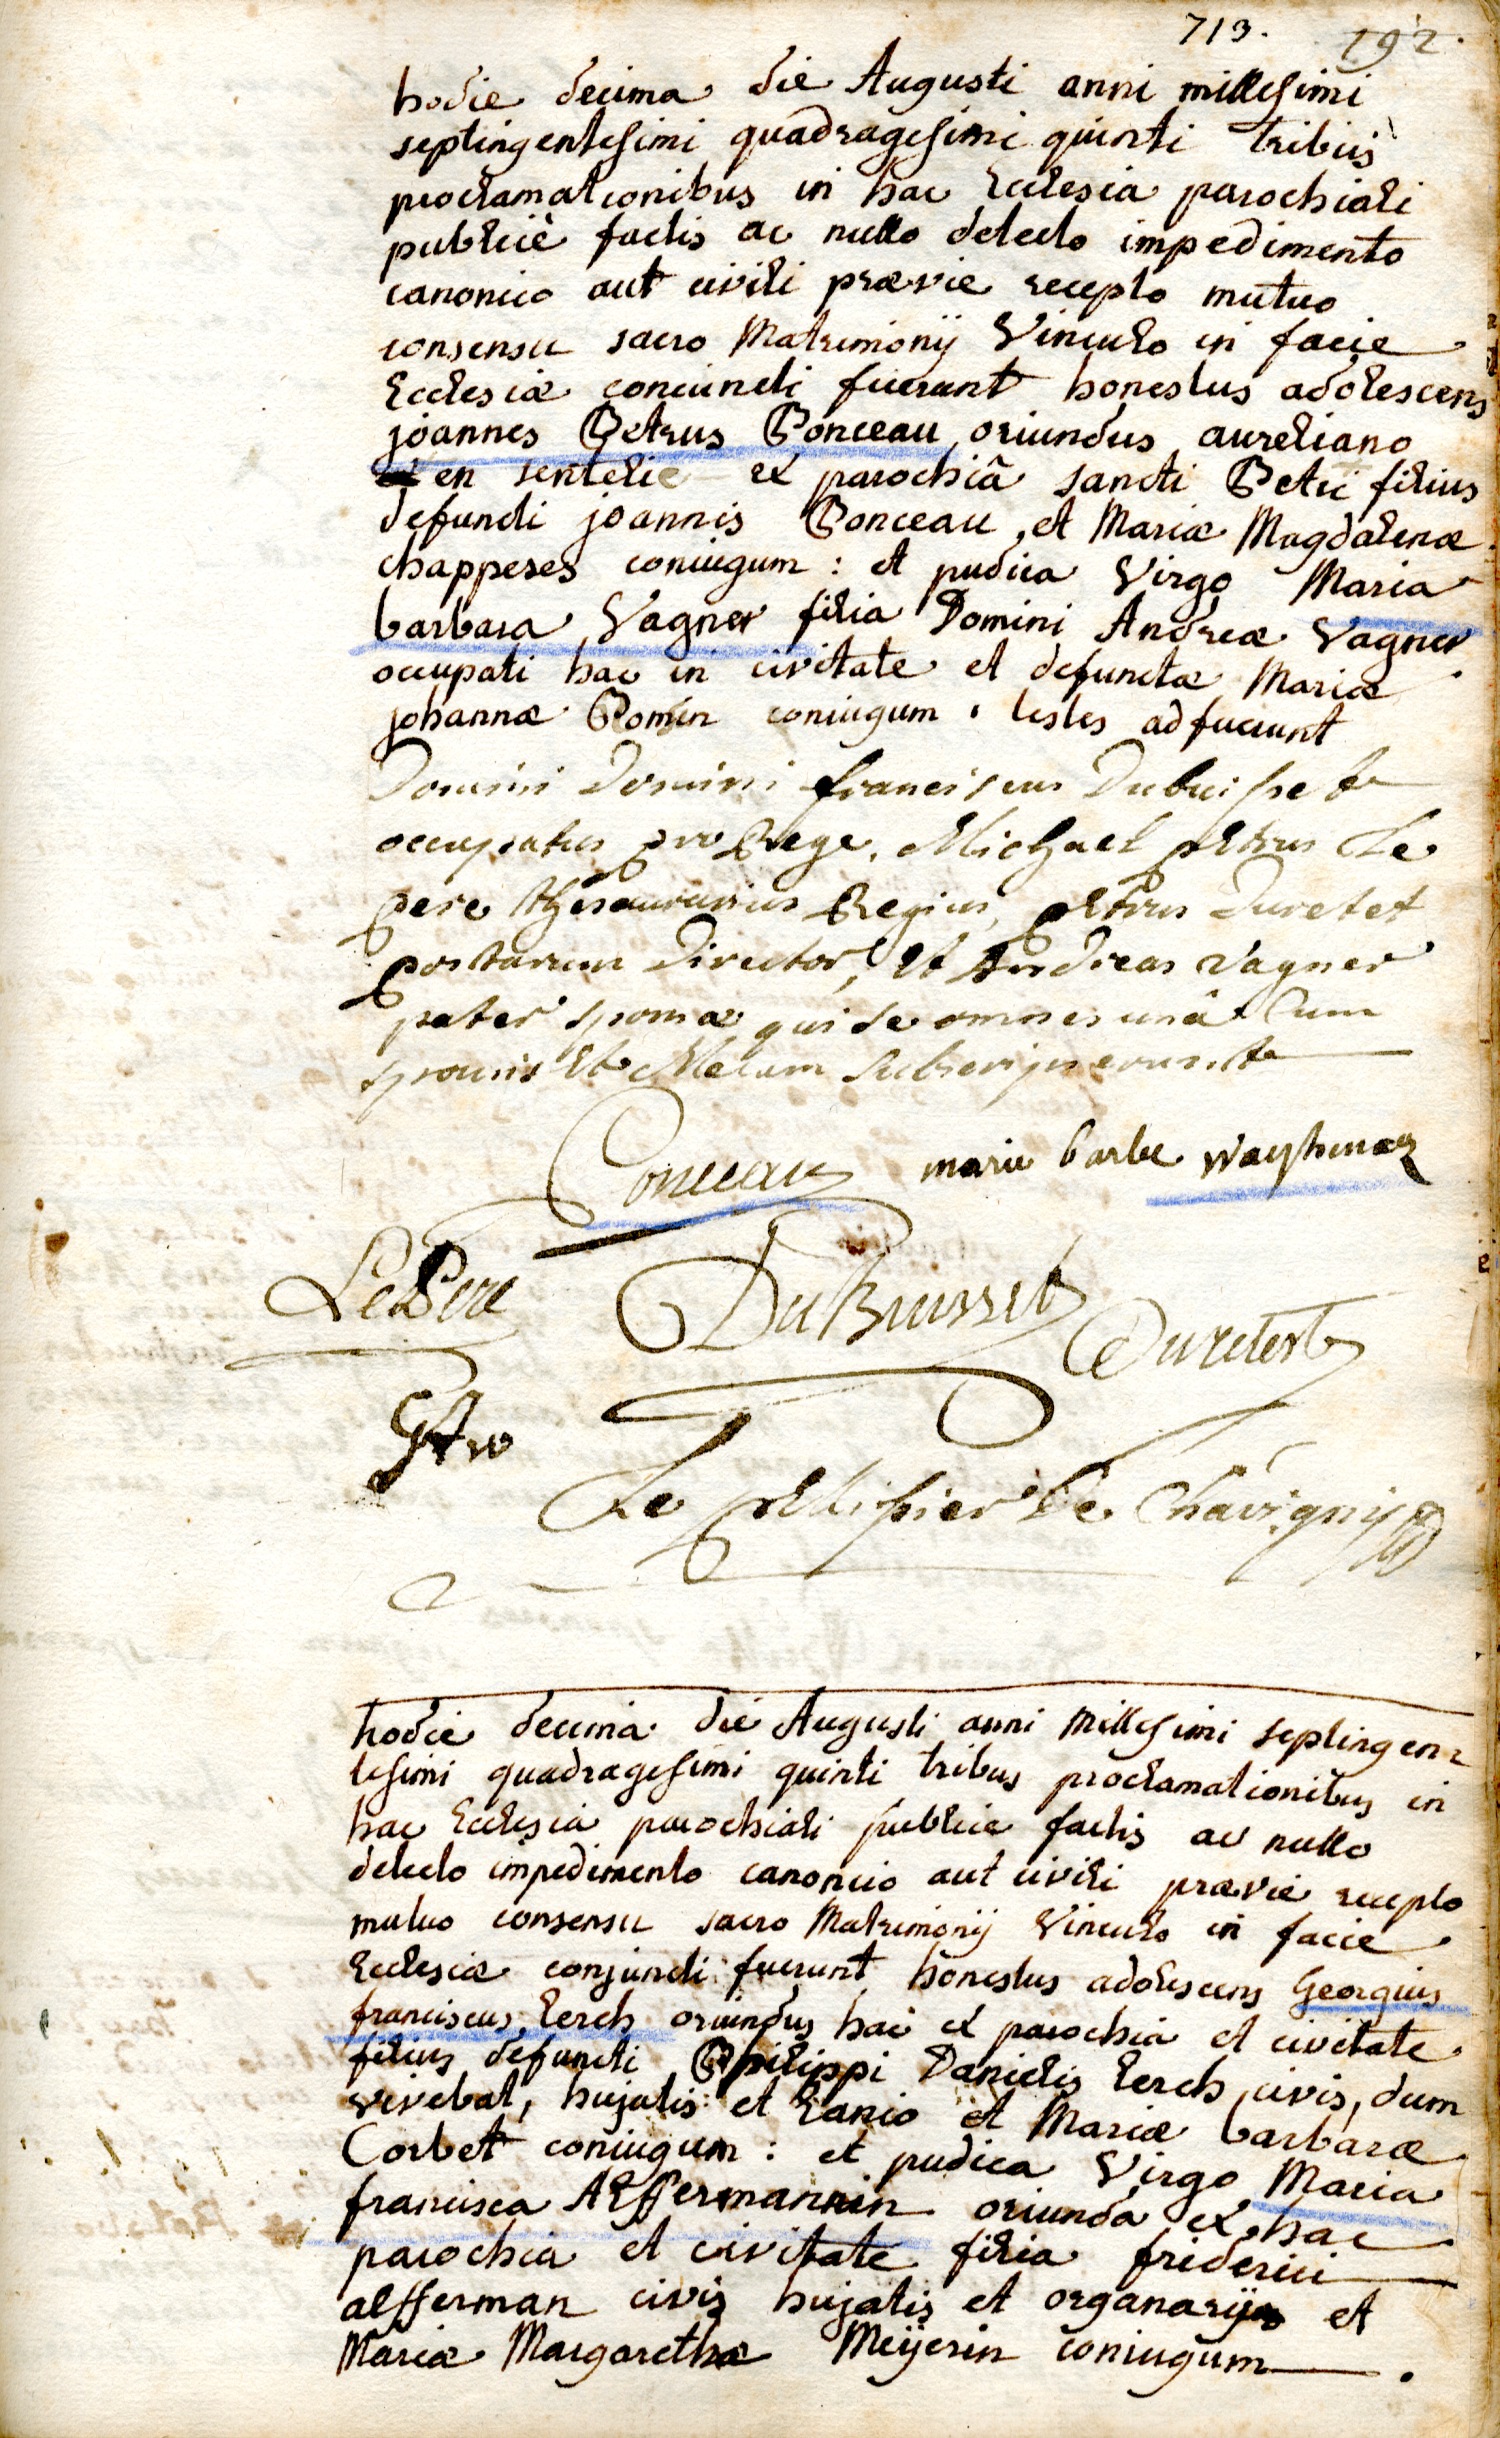 713. 192.
hodie decima die Augusti anni millesimi
septingentesimi quadragesimi quinti tribus
proclamationibus in hac Ecclesia parochiali
publicè factis ac nullo detecto impedimento
canonico aut civili prævie recepto mutuo
consensu sacro Matrimonij Vinculo in facie
Ecclesiæ coniuncti fuerunt honestus adolescens
joannes Petrus Ponceau oriundus aureliano
en sentelie ex parochiâ sancti Petri filius
defuncti joannis Ponceau, et Mariæ Magdalenæ
chappeses coniugum : et pudica Virgo Maria
barbara Vagner filia Domini Andreæ Vagner
occupati hac in civitate et defunctæ Mariæ
johannæ Romin coniugum . testes adfuerunt
Domini Domini franciscus Dubuisset
occupatus pro Rege, Michael petrus Le
pere thesaurarius Regius, petrus Duretet
postarum Director, et Andreas Vagner
pater sponsæ qui se omnes unâ Cum
sponsis et Mecum subscripserunt
Ponceau marie barbe
LePere DuBuisset Duretest
Le pellissier de Chavigny
hodie decima die Augusti anni Millesimi septingen
tesimi quadragesimi quinti tribus proclamationibus in
hac Ecclesia parochiali publice factis ac nullo
detecto impedimento canonico aut civili prævie recepto
mutuo consensu sacro Matrimonij Vinculo in facie
Ecclesiæ conjuncti fuerunt honestus adolescens Georgius
franciscus Lerch oriundus hac ex parochia et civitate
filius defuncti Philippi Danielis Lerch civis, dum
vivebat, hujatis et Lanio et Mariæ barbaræ
Corbet coniugum : et pudica Virgo Maria
francisca Alffermannin oriunda ex hac
parochia et civitate filia friderici
alfferman civis hujatis et organarij et
Mariæ Margarethæ Meijerin coniugum .